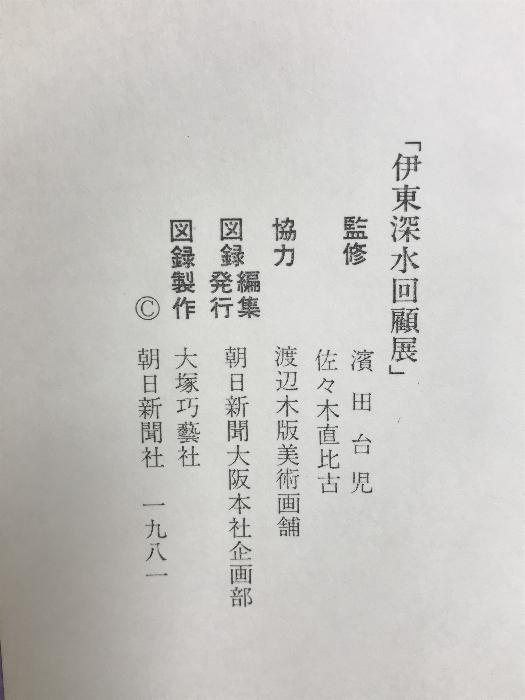 「伊東深水回顧展」
監修　濱田台児
佐々木直比古
協力　渡辺木版美術画舗
図録編集発行　朝日新聞大阪本社企画部
図録製作　大塚巧藝社
©　朝日新聞社　一九八一